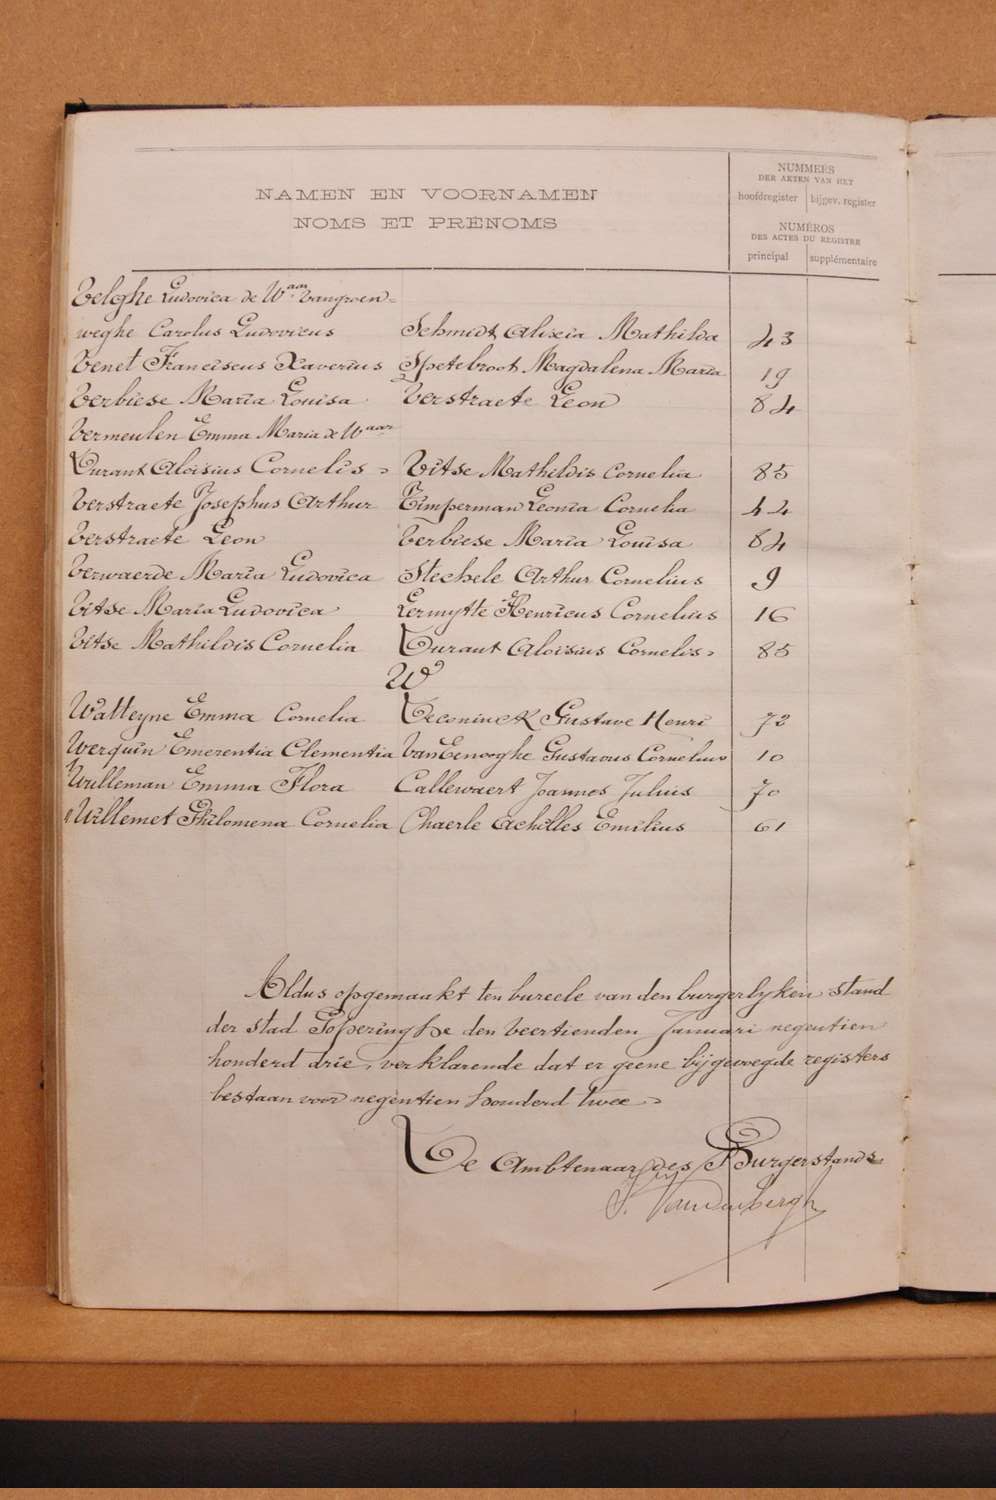 NAMEN EN VOORNAMEN
NOMS ET PRÉNOMS
NUMMERS
DER AKTEN VAN HET
hoofdregister bijgev. register
NUMÉROS
DES ACTES DU REGISTRE
principal supplémentaire
Velghe Ludovica de Waar Vangroen=
weghe Carolus Ludovicus Schmidt Alixia Mathilda 43
Venet Franciscus Xaverius Spetebroot Magdalena Maria 19
Verbiese Maria Louisa Verstraete Leon 84
Vermeulen Emma Maria de Waar
Durant Aloisius Cornelis = Vitse Mathildis Cornelia 85
Verstraete Josephus Arthur Timperman Leonia Cornelia 44
Verstraete Leon Verbiese Maria Louisa 84
Verwaerde Maria Ludovica Stechele Arthur Cornelius 9
Vitse Maria Ludovica Lermytte Henricus Cornelius 16
Vitse Mathildis Cornelia Durant Aloisius Cornelis = 85
W
Watteyne Emma Cornelia Deconinck Gustave Henri 72
Werquin Emerentia Clementia Van Eenooghe Gustavus Cornelius 10
Wulleman Emma Flora Callewaert Joannes Julius 70
Willemet Philomena Cornelia Chaerle Achilles Emilius 61
Aldus opgemaakt ten bureele van den burgerlyken stand
der stad Poperinghe den veertienden Januari negentien
honderd drie, verklarende dat er geene bijgevoegde registers
bestaan voor negentien honderd twee =
De Ambtenaar des Burgerstands
Vandenbergh